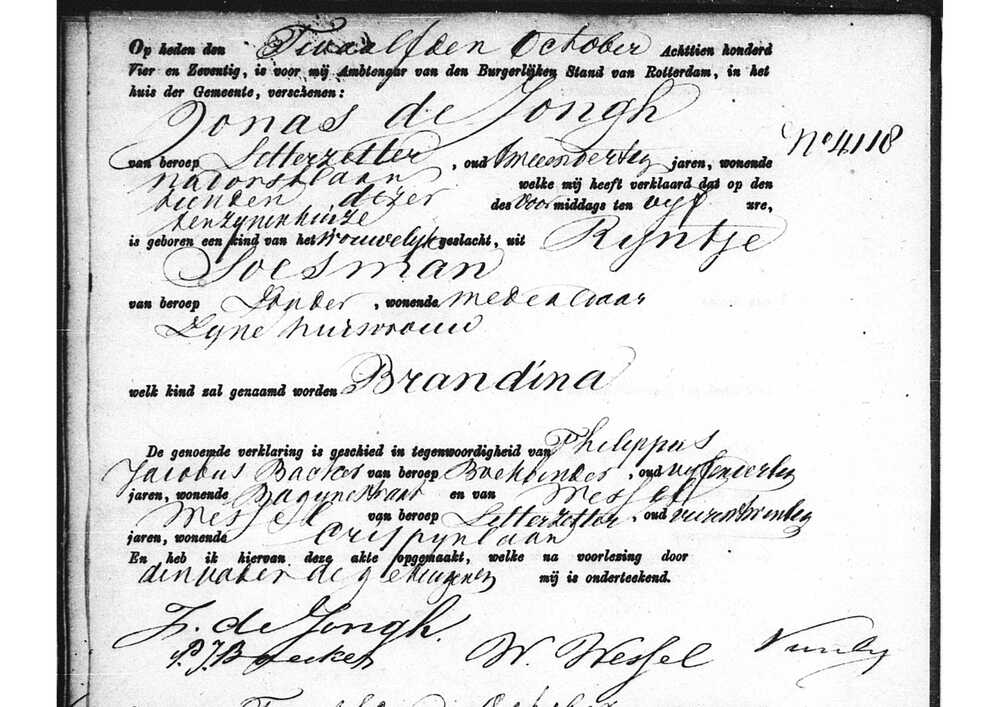 Op heden den Twaalfden October Achttien honderd
Vier en Zeventig, is voor mij Ambtenaar van den Burgerlijken Stand van Rotterdam, in het
huis der Gemeente, verschenen:
Jonas de Jongh
No 4118
van beroep Letterzetter, oud tweeendertig jaren, wonende
welke mij heeft verklaard dat op den
tienden dezer des Voormiddags ten vyf ure,
tenzynenhuize
is geboren een kind van het vrouwelyk geslacht, uit Ryntje
Soesman
van beroep Zonder, wonende mede aldaar
Zyne huisvrouw
welk kind zal genaamd worden Brandina
De genoemde verklaring is geschied in tegenwoordigheid van Philippus
Jacobus Backer van beroep Boekbinder, oud
jaren, wonende Bagynestraat en van Wessel
Wessel van beroep Letterzetter, oud
jaren, wonende Crispynlaan
En heb ik hiervan deze akte opgemaakt, welke na voorlezing door
den vader de getuigen mij is onderteekend.
J. de Jongh.
P. J. Backer W. Wessel